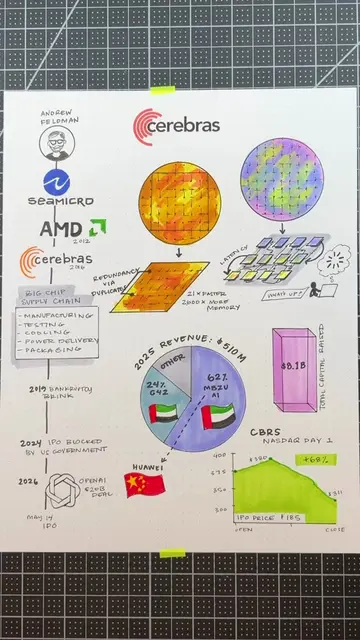 ANDREW
FELDMAN
cerebras
SEAMICRO
AMD
2012
cerebras
2016
BIG CHIP
SUPPLY CHAIN
- MANUFACTURING
- TESTING
- COOLING
- POWER DELIVERY
- PACKAGING
REDUNDANCY
VIA
DUPLICATES
21X FASTER
MORE
MEMORY
LATENCY
WHAT'S UP?
2025 REVENUE: $510M
OTHER
24%
G42
62%
MBZU
AI
HUAWEI
$8.1B
TOTAL CAPITAL RAISED
2019 BANKRUPTCY
BRINK
2024 IPO BLOCKED
BY US GOVERNMENT
2026
OPENAI
$20B
DEAL
MAY 14
IPO
CBRS
NASDAQ DAY 1
400
350
300
+68%
$311
IPO PRICE $185
OPEN
CLOSE